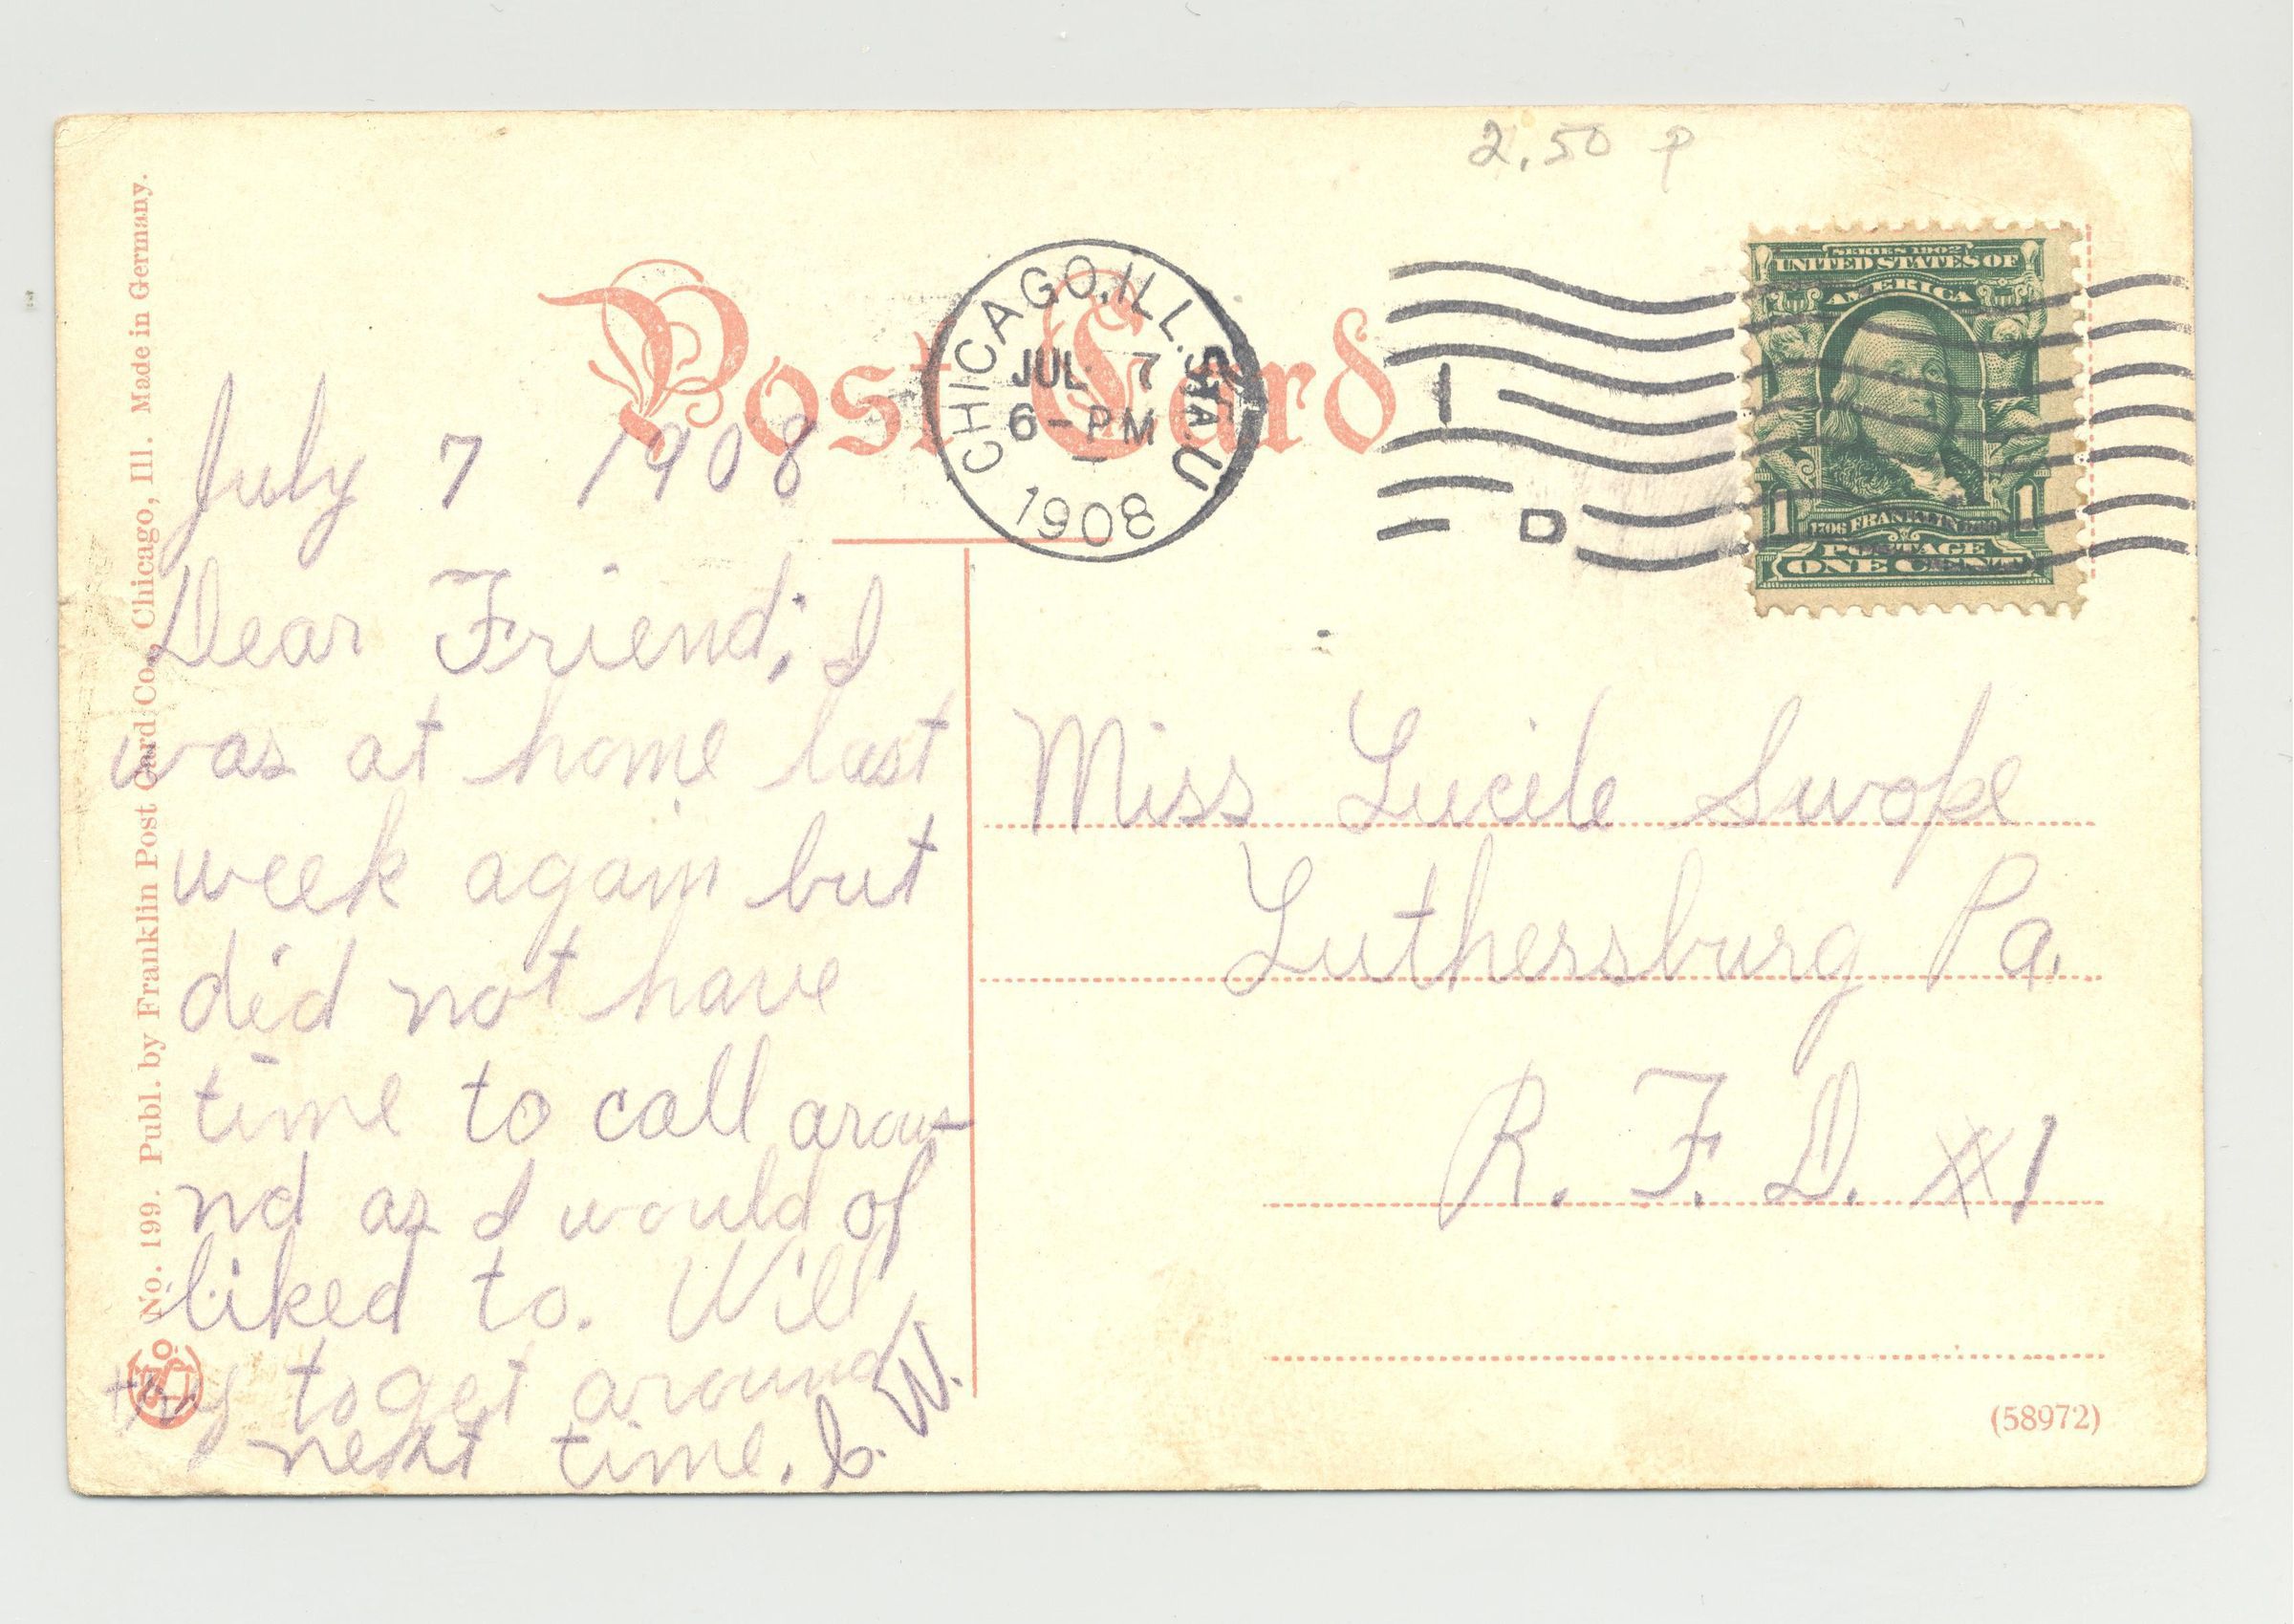 2.50 P
Post Card
CHICAGO, ILL. STA. U
JUL 7
6-PM
1908
1 D
SERIES 1902
UNITED STATES OF
AMERICA
1706 FRANKLIN 1790
1 1
POSTAGE
ONE CENT
No. 199. Publ. by Franklin Post Card Co., Chicago, Ill. Made in Germany.
July 7 1908
Dear Friend; I
was at home last
week again but
did not have
time to call arou-
nd as I would of
liked to. Will
try to get around
next time. C. W.
Miss Lucile Swope
Luthersburg Pa.
R. F. D. #1
(58972)